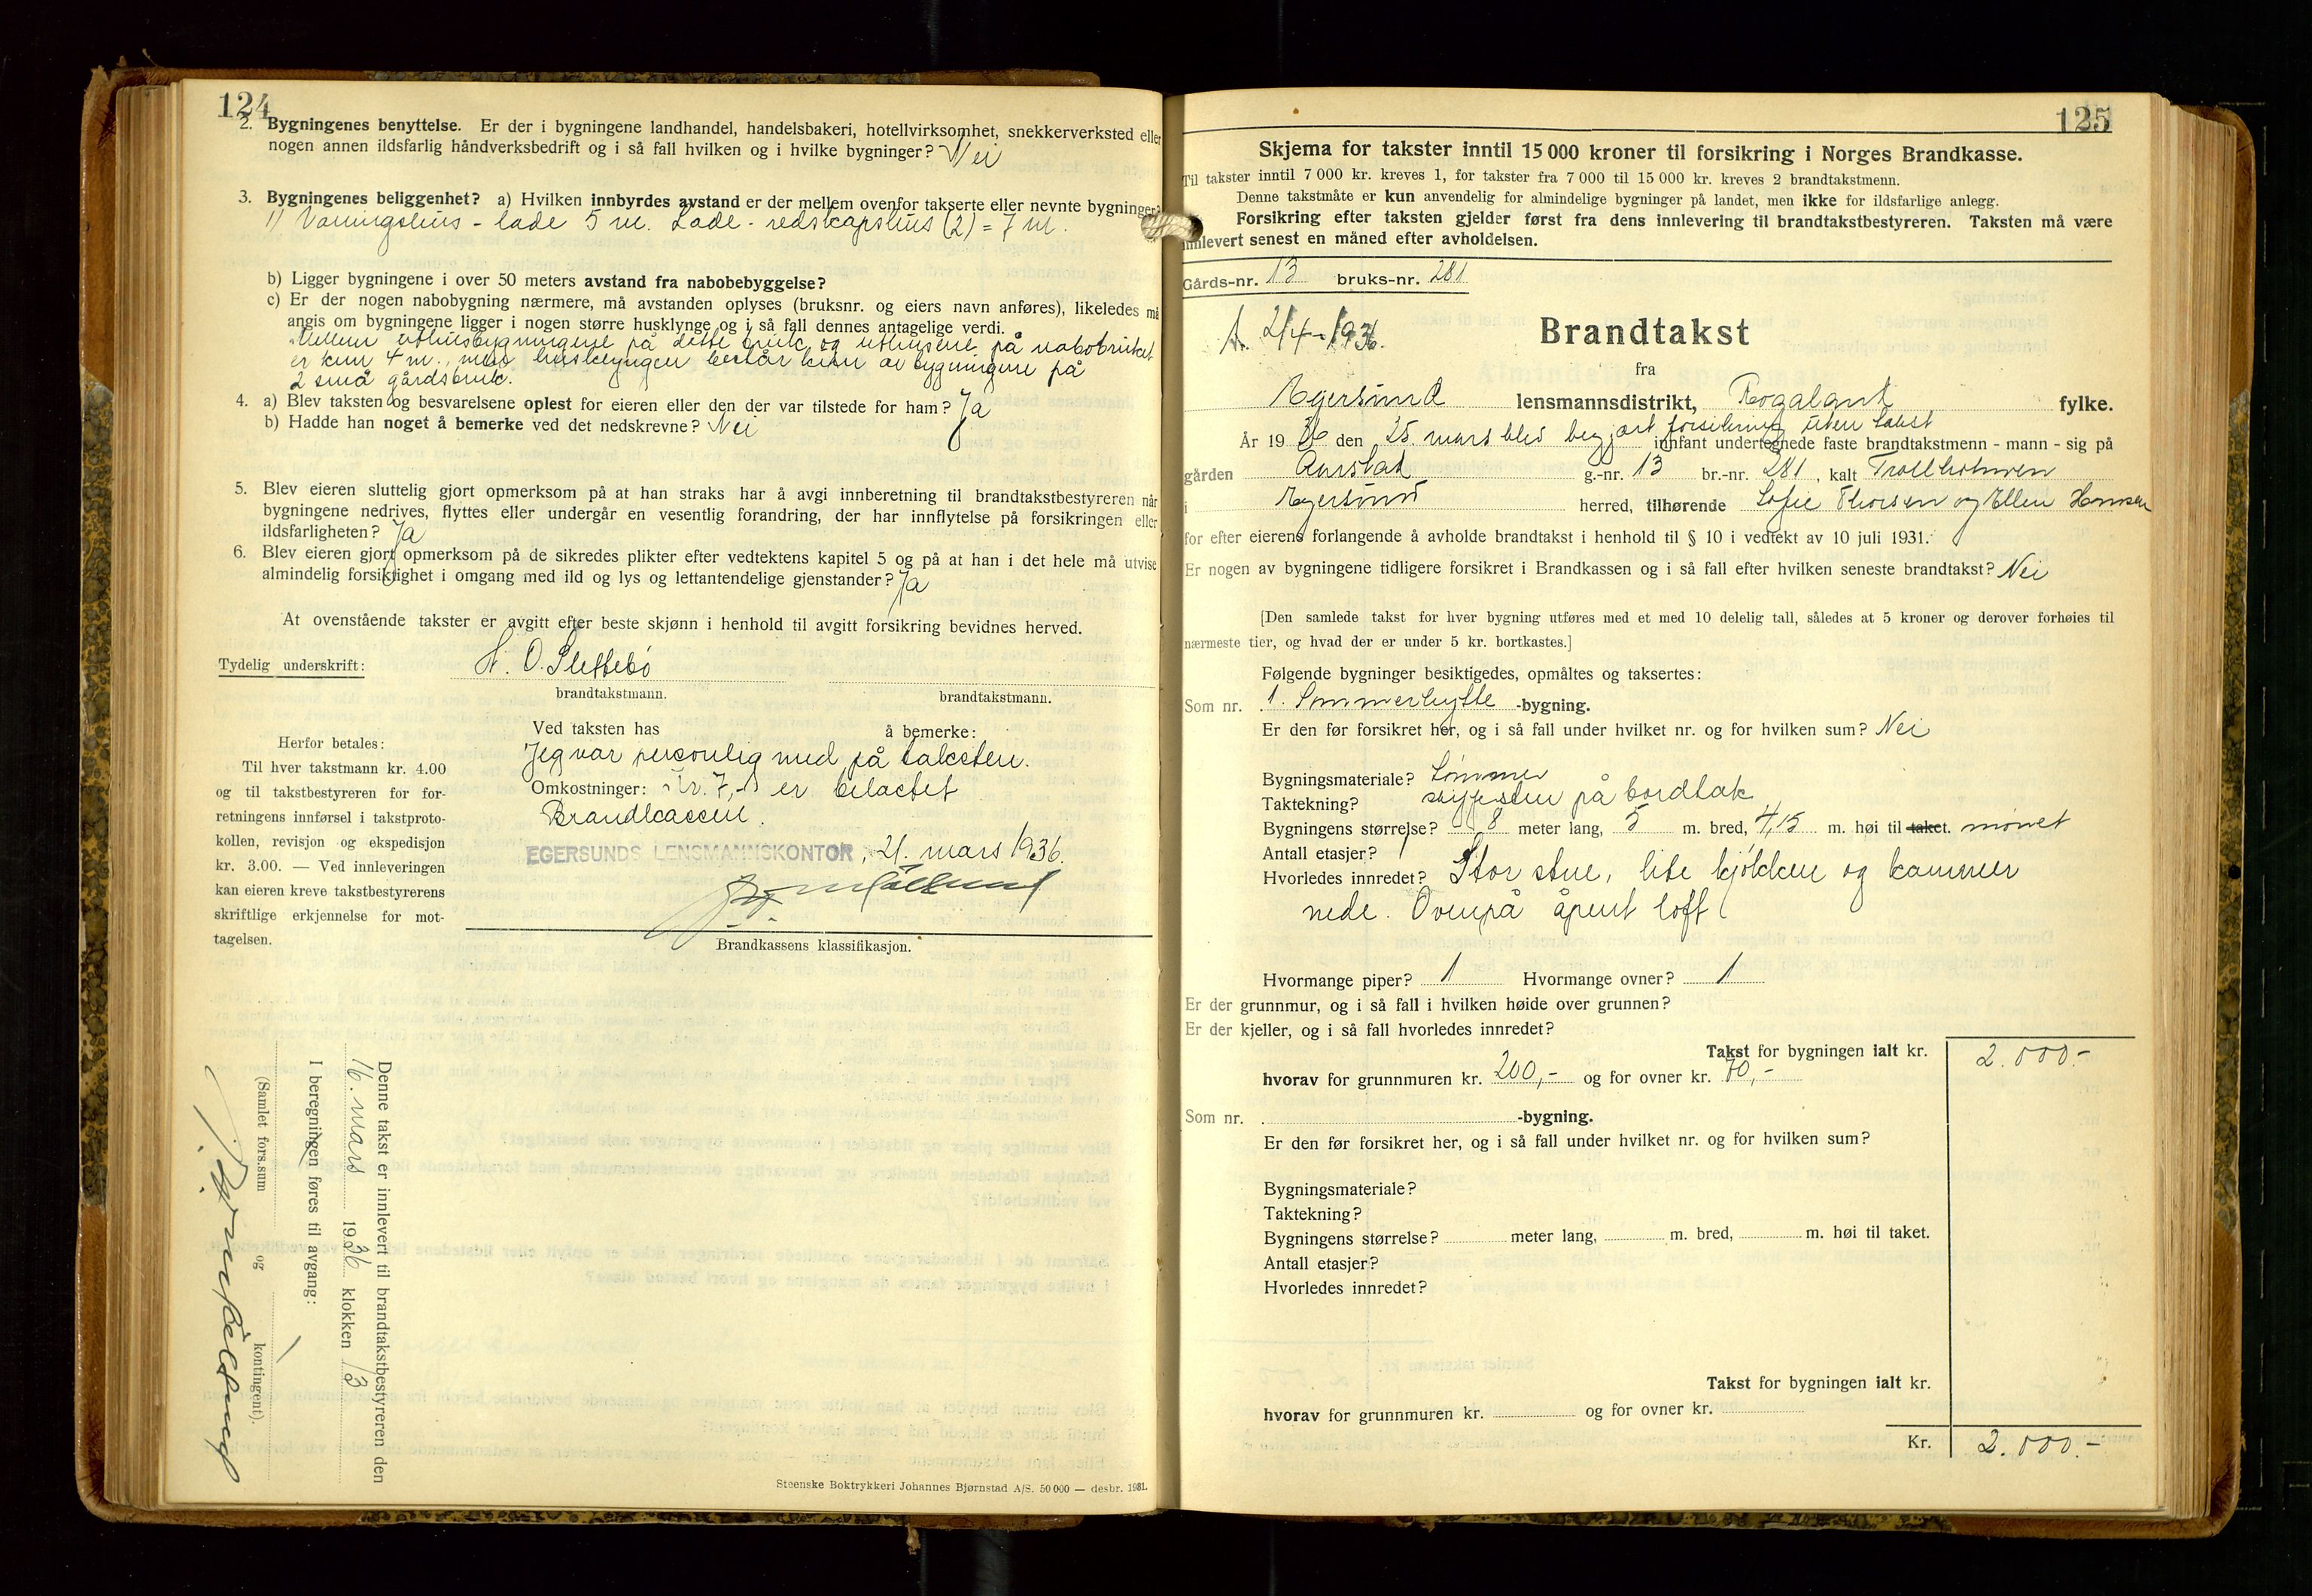 124
2. Bygningenes benyttelse. Er der i bygningene landhandel, handelsbakeri, hotellvirksomhet, snekkerverksted eller
nogen annen ildsfarlig håndverksbedrift og i så fall hvilken og i hvilke bygninger? Nei
3. Bygningenes beliggenhet? a) Hvilken innbyrdes avstand er der mellem ovenfor takserte eller nevnte bygninger?
1) Vaningshus - lade 5 m. Lade - redskapshus (2) = 7 m.
b) Ligger bygningene i over 50 meters avstand fra nabobebyggelse?
c) Er der nogen nabobygning nærmere, må avstanden oplyses (bruksnr. og eiers navn anføres), likeledes må
angis om bygningene ligger i nogen større husklynge og i så fall dennes antagelige verdi.
Mellem uthusbygningene på dette bruk og uthusene på nabobruket
er kun 4 m., men husklyngen består kun av bygningene på
2 små gårdsbruk.
4. a) Blev taksten og besvarelsene oplest for eieren eller den der var tilstede for ham? Ja
b) Hadde han noget å bemerke ved det nedskrevne? Nei
5. Blev eieren sluttelig gjort opmerksom på at han straks har å avgi innberetning til brandtakstbestyreren når
bygningene nedrives, flyttes eller undergår en vesentlig forandring, der har innflytelse på forsikringen eller
ildsfarligheten? Ja
6. Blev eieren gjort opmerksom på de sikredes plikter efter vedtektens kapitel 5 og på at han i det hele må utvise
almindelig forsiktighet i omgang med ild og lys og lettantendelige gjenstander? Ja
At ovenstående takster er avgitt efter beste skjønn i henhold til avgitt forsikring bevidnes herved.
Tydelig underskrift: O. Slettebø
brandtakstmann. brandtakstmann.
Ved taksten has å bemerke:
Jeg var personlig med på taksten.
Omkostninger: kr. 7,- er belastet
Brandkassen.
EGERSUNDS LENSMANNSKONTOR, 21. mars 1936.
Herfor betales:
Til hver takstmann kr. 4.00
og til takstbestyreren for for-
retningens innførsel i takstproto-
kollen, revisjon og ekspedisjon
kr. 3.00. — Ved innleveringen
kan eieren kreve takstbestyrerens
skriftlige erkjennelse for mot-
tagelsen.
Brandkassens klassifikasjon.
Denne takst er innlevert til brandtakstbestyreren den
16. mars 1936 klokken 13
I beregningen føres til avgang:
(Samlet fors.sum og kontingent).
Steenske Boktrykkeri Johannes Bjørnstad A/S. 50 000 — desbr. 1931.
125
Skjema for takster inntil 15 000 kroner til forsikring i Norges Brandkasse.
Til takster inntil 7 000 kr. kreves 1, for takster fra 7 000 til 15 000 kr. kreves 2 brandtakstmenn.
Denne takstmåte er kun anvendelig for almindelige bygninger på landet, men ikke for ildsfarlige anlegg.
Forsikring efter taksten gjelder først fra dens innlevering til brandtakstbestyreren. Taksten må være
innlevert senest en måned efter avholdelsen.
Gårds-nr. 13 bruks-nr. 281
2/4-1936.
Brandtakst
fra
Egersund lensmannsdistrikt, Rogaland fylke.
År 1936 den 25. mars blev begjært forsikring uten takst innfant undertegnede faste brandtakstmenn - mann - sig på
gården Aarstad g.-nr. 13 br.-nr. 281, kalt Trollholmen
i Egersund herred, tilhørende Sofie Thorsen og Ellen Hansen
for efter eierens forlangende å avholde brandtakst i henhold til § 10 i vedtekt av 10 juli 1931.
Er nogen av bygningene tidligere forsikret i Brandkassen og i så fall efter hvilken seneste brandtakst? Nei
[Den samlede takst for hver bygning utføres med et med 10 delelig tall, således at 5 kroner og derover forhøies til
nærmeste tier, og hvad der er under 5 kr. bortkastes.]
Følgende bygninger besiktigedes, opmåltes og taksertes:
Som nr. 1. Sommerhytte -bygning.
Er den før forsikret her, og i så fall under hvilket nr. og for hvilken sum? Nei
Bygningsmateriale? Tømmer
Taktekning? skifersten på bordtak
Bygningens størrelse? 8 meter lang, 5 m. bred, 4,15 m. høi til taket. mønet
Antall etasjer? 1
Hvorledes innredet? Stor stue, lite kjøkken og kammer
nede. Ovenpå åpent loft
Hvormange piper? 1 Hvormange ovner? 1
Er der grunnmur, og i så fall i hvilken høide over grunnen?
Er der kjeller, og i så fall hvorledes innredet?
Takst for bygningen ialt kr. 2.000.-
hvorav for grunnmuren kr. 200,- og for ovner kr. 70,-
Som nr. -bygning.
Er den før forsikret her, og i så fall under hvilket nr. og for hvilken sum?
Bygningsmateriale?
Taktekning?
Bygningens størrelse? meter lang, m. bred, m. høi til taket.
Antall etasjer?
Hvorledes innredet?
Takst for bygningen ialt kr.
hvorav for grunnmuren kr. og for ovner kr.
Kr. 2.000.-